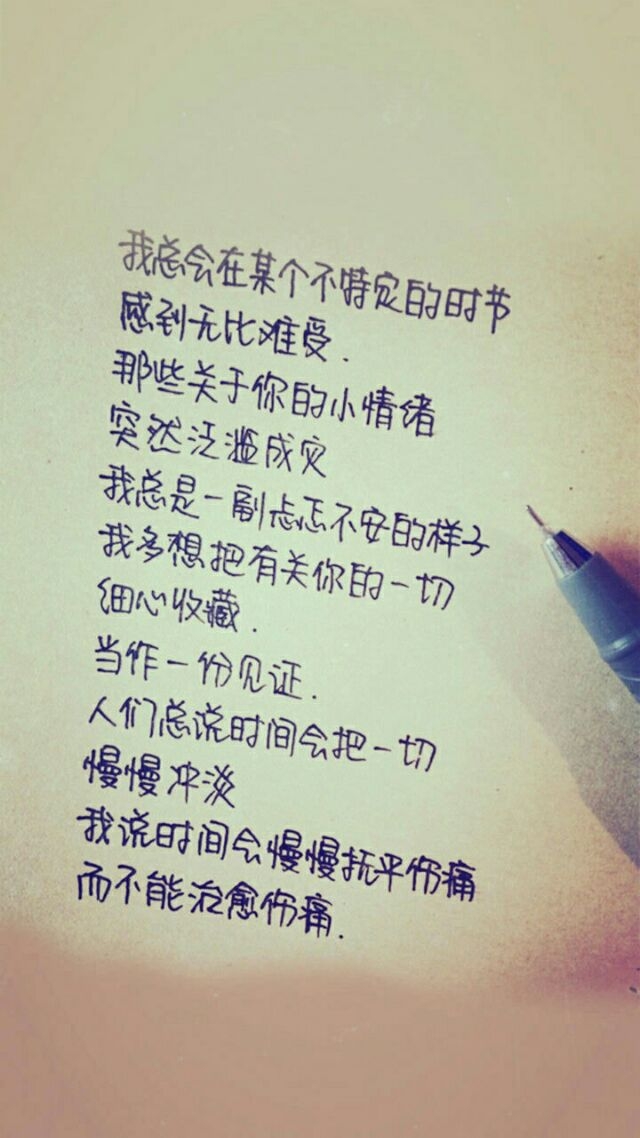 我总会在某个不特定的时节
感到无比难受.
那些关于你的小情绪
突然泛滥成灾
我总是一副忐忑不安的样子
我多想把有关你的一切
细心收藏.
当作一份见证.
人们总说时间会把一切
慢慢冲淡
我说时间会慢慢抚平伤痛
而不能治愈伤痛.